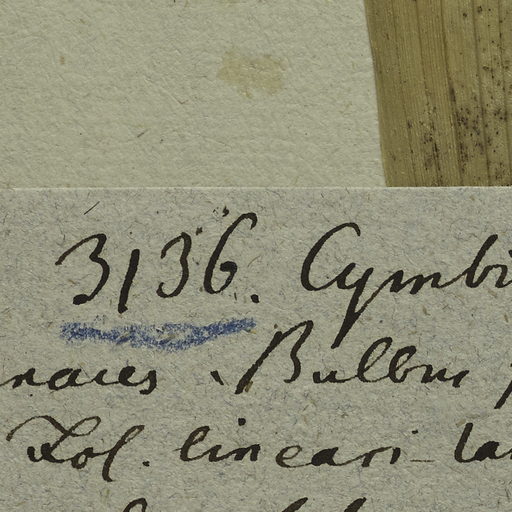 3136. Cymbi
naces. Bulbus
Fol. lineari-la